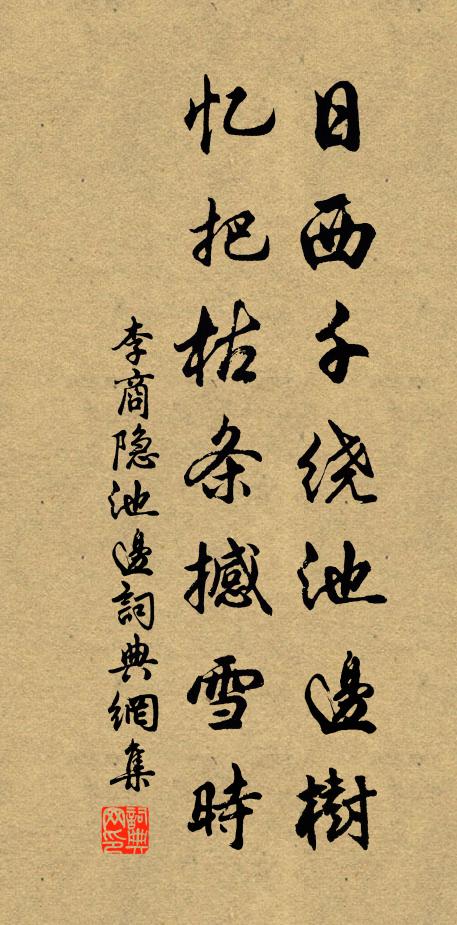 日西千绕池邊樹
忆把枯条撼雪時
李商隐池邊詞典網集
詞典网印